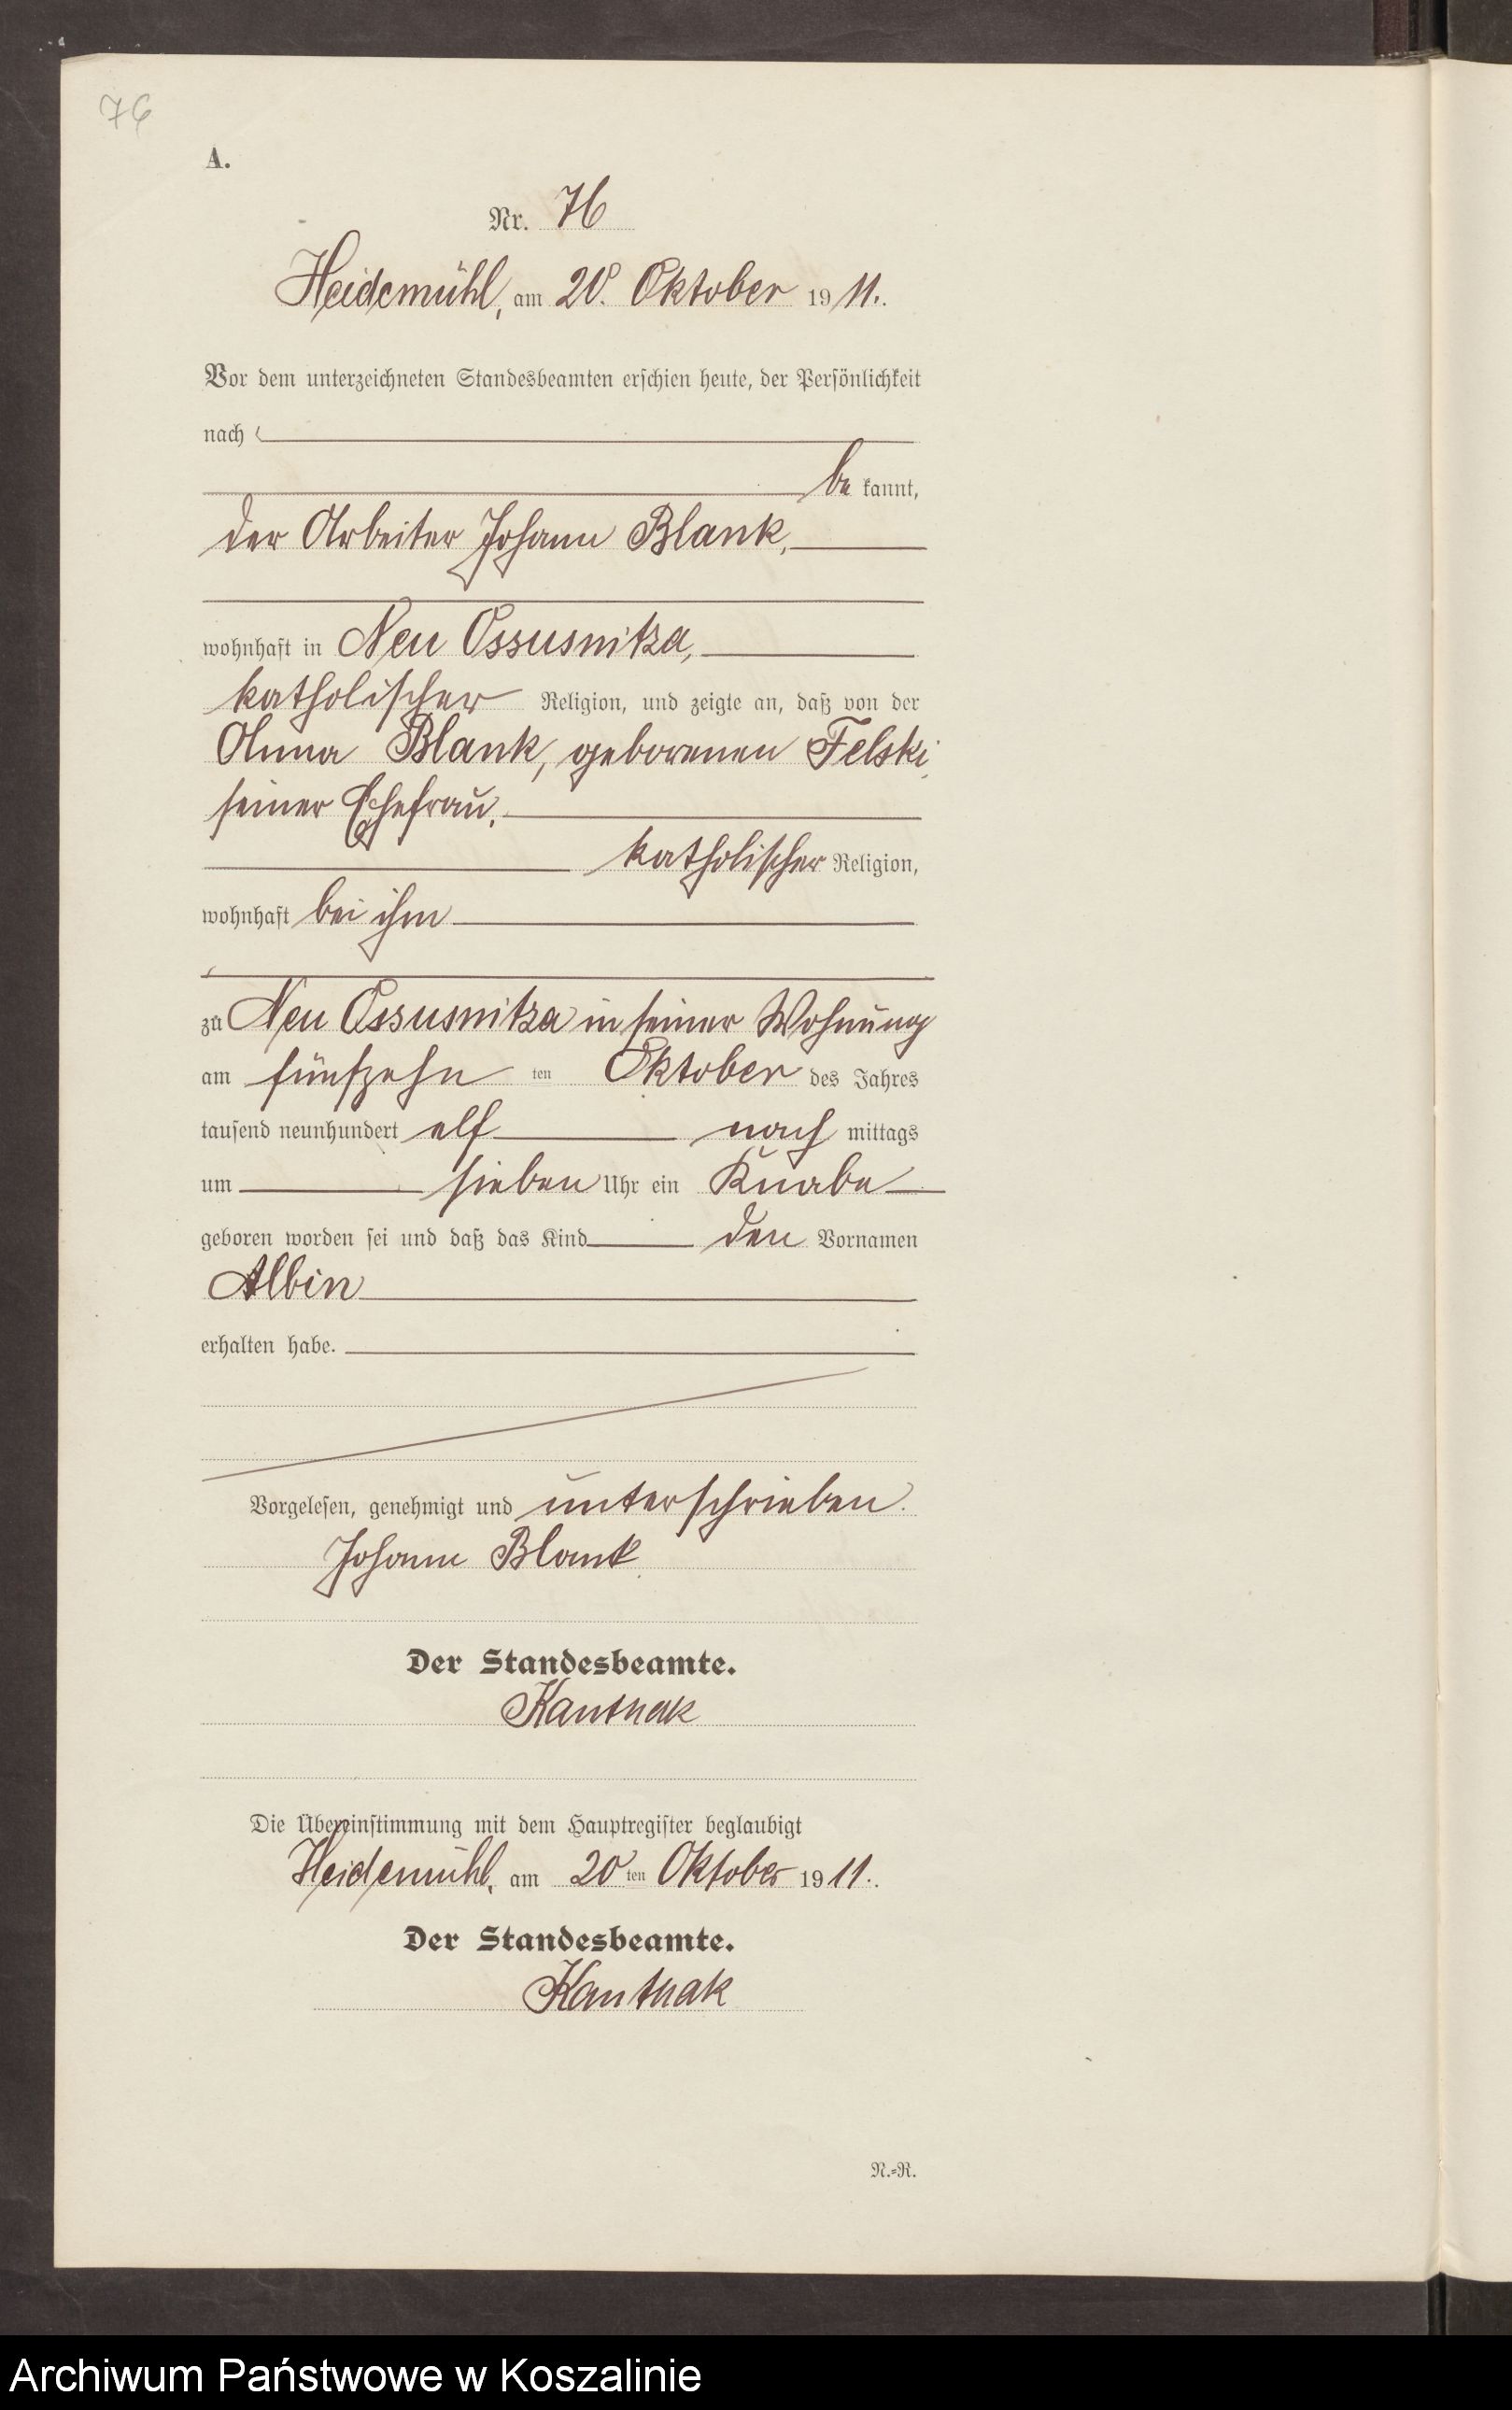 76
A.
Nr. 76
Heidemühl, am 20. Oktober 1911.
Vor dem unterzeichneten Standesbeamten erschien heute, der Persönlichkeit
nach
be kannt,
der Arbeiter Johann Blank,
wohnhaft in Neu Ossusnitza,
katholischer Religion, und zeigte an, daß von der
Anna Blank, geborenen Felski,
seiner Ehefrau,
katholischer Religion,
wohnhaft bei ihm
zu Neu Ossusnitza in seiner Wohnung
am fünfzehn ten Oktober des Jahres
tausend neunhundert elf nach mittags
um sieben Uhr ein Knabe
geboren worden sei und daß das Kind den Vornamen
Albin
erhalten habe.
Vorgelesen, genehmigt und unterschrieben.
Johann Blank
Der Standesbeamte.
Kanthak
Die Übereinstimmung mit dem Hauptregister beglaubigt
Heidemühl, am 20 ten Oktober 1911.
Der Standesbeamte.
Kanthak
N.=R.
Archiwum Państwowe w Koszalinie